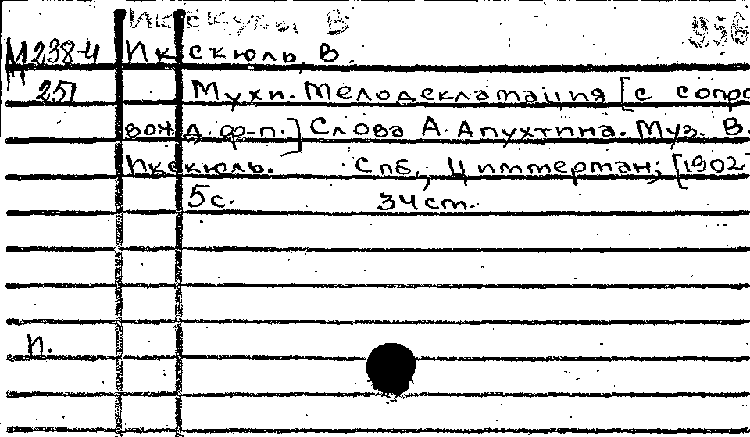 Икскюль В 956
М 238-4 Икскюль, В.
251 Мухи. Мелодекламация [с сопро
вожд. ф-п.] Слова А. Апухтина. Муз. В.
Икскюль. Спб., Циммерман; [1902
5с. 34 ст.
п.